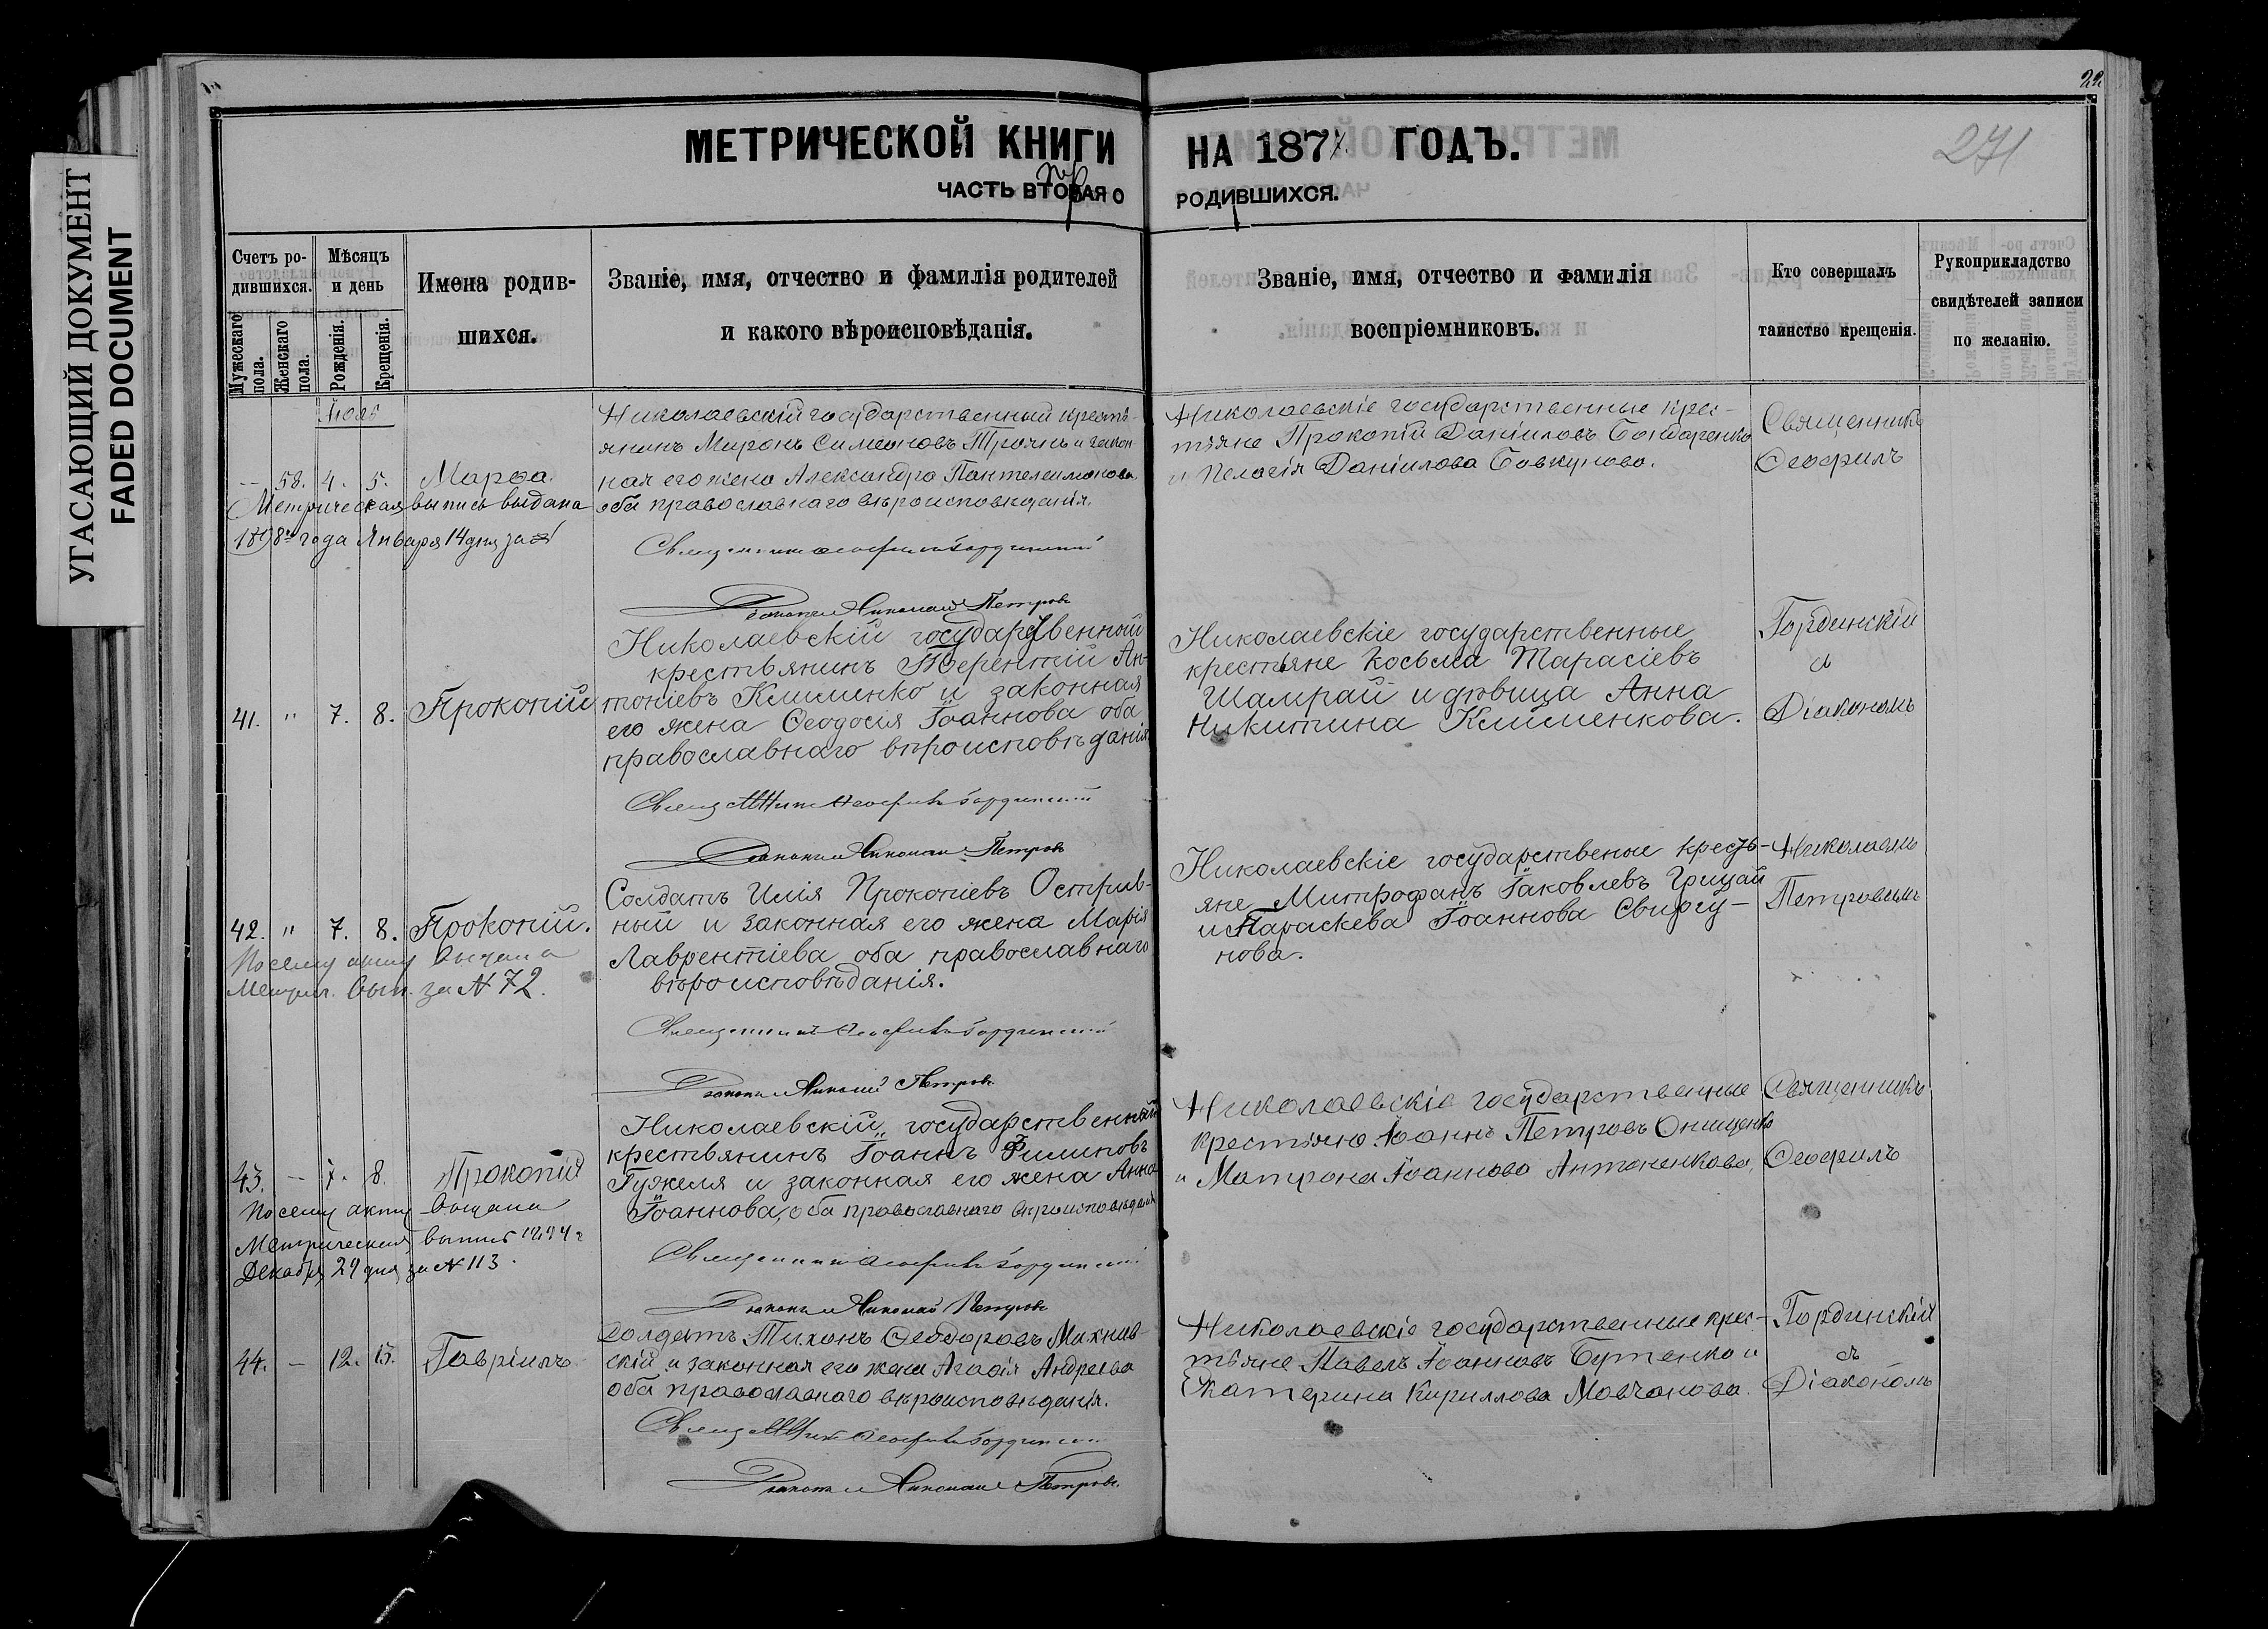 УГАСАЮЩИЙ ДОКУМЕНТ
FADED DOCUMENT
22
271
МЕТРИЧЕСКОЙ КНИГИ НА 187 ГОДЪ.
ЧАСТЬ ВТОРАЯ О РОДИВШИХСЯ.
Счетъ ро-
дившихся.
Мужескаго пола.
Женскаго пола.
Мѣсяцъ
и день
Рожденія.
Крещенія.
Имена родив-
шихся.
Званіе, имя, отчество и фамилія родителей
и какого вѣроисповѣданія.
Званіе, имя, отчество и фамилія
воспріемниковъ.
Кто совершалъ
таинство крещенія.
Рукоприкладство
свидѣтелей записи
по желанію.
Іюль
— 58. 4. 5. Марѳа.
Метрическая выпись выдана
1898 года Января 14 дня за №
Николаевскій государственный кресть-
янинъ Миронъ Симеоновъ Троянъ и закон
ная его жена Александра Пантелеимонова
оба православнаго вѣроисповѣданія.
Священникъ Ѳеофилъ Гординскій
Діаконъ Николай Петровъ
Николаевскіе государственные крес-
тяне Прокопій Даніиловъ Бондаренко
и Пелагія Даніилова Бовкунова.
Священникъ
Ѳеофилъ
41. " 7. 8. Прокопій
Николаевскій государственный
крествянинъ Терентій Ан-
тоніевъ Клименко и законная
его жена Ѳеодосія Іоаннова оба
православнаго вѣроисповѣданія
Священникъ Ѳеофилъ Гординскій
Діаконъ Николай Петровъ
Николаевскіе государственные
крестьяне Косьма Тарасіевъ
Шамрай и дѣвица Анна
Никитина Клименкова.
Гординскій
съ
Діакономъ
42. " 7. 8. Прокопій.
По сему акту выдана
Метрич. вып. за № 72.
Солдатъ Илія Прокопіевъ Острив-
ный и законная его жена Марія
Лаврентіева оба православнаго
вѣроисповѣданія.
Священникъ Ѳеофилъ Гординскій
Діаконъ Николай Петровъ
Николаевскіе государственые кресть-
яне Митрофанъ Іаковлевъ Грицай
и Параскева Іоаннова Свиргу-
нова.
Николаемъ
Петровымъ
43. — 7. 8. Прокопій
По сему акту выдана
Метрическая выпись 1894 г
Декабря 29 дня за № 113.
Николаевскій государственный
крествянинъ Іоаннъ Филиповъ
Гужеля и законная его жена Анна
Іоаннова, оба православнаго вѣроисповѣданія
Священникъ Ѳеофилъ Гординскій
Діаконъ Николай Петровъ
Николаевскіе государственные
крестяне Іоаннъ Петровъ Онищенко
и Матрона Іоаннова Антоненкова.
Священникъ
Ѳеофилъ
44. — 12. 15. Гавріилъ
Солдатъ Тихонъ Ѳеодоровъ Михнев-
скій и законная его жена Агафія Андреева
оба православнаго вѣроисповѣданія.
Священникъ Ѳеофилъ Гординскій
Діаконъ Николай Петровъ.
Николаевскіе государственные крес-
тяне Павелъ Іоанновъ Бутенко и
Екатерина Кириллова Мовчанова.
Гординскій
съ
Діакономъ